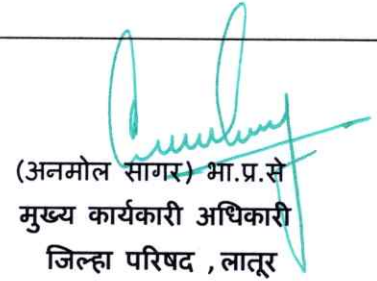 (अनमोल सागर) भा.प्र.से
मुख्य कार्यकारी अधिकारी
जिल्हा परिषद , लातूर